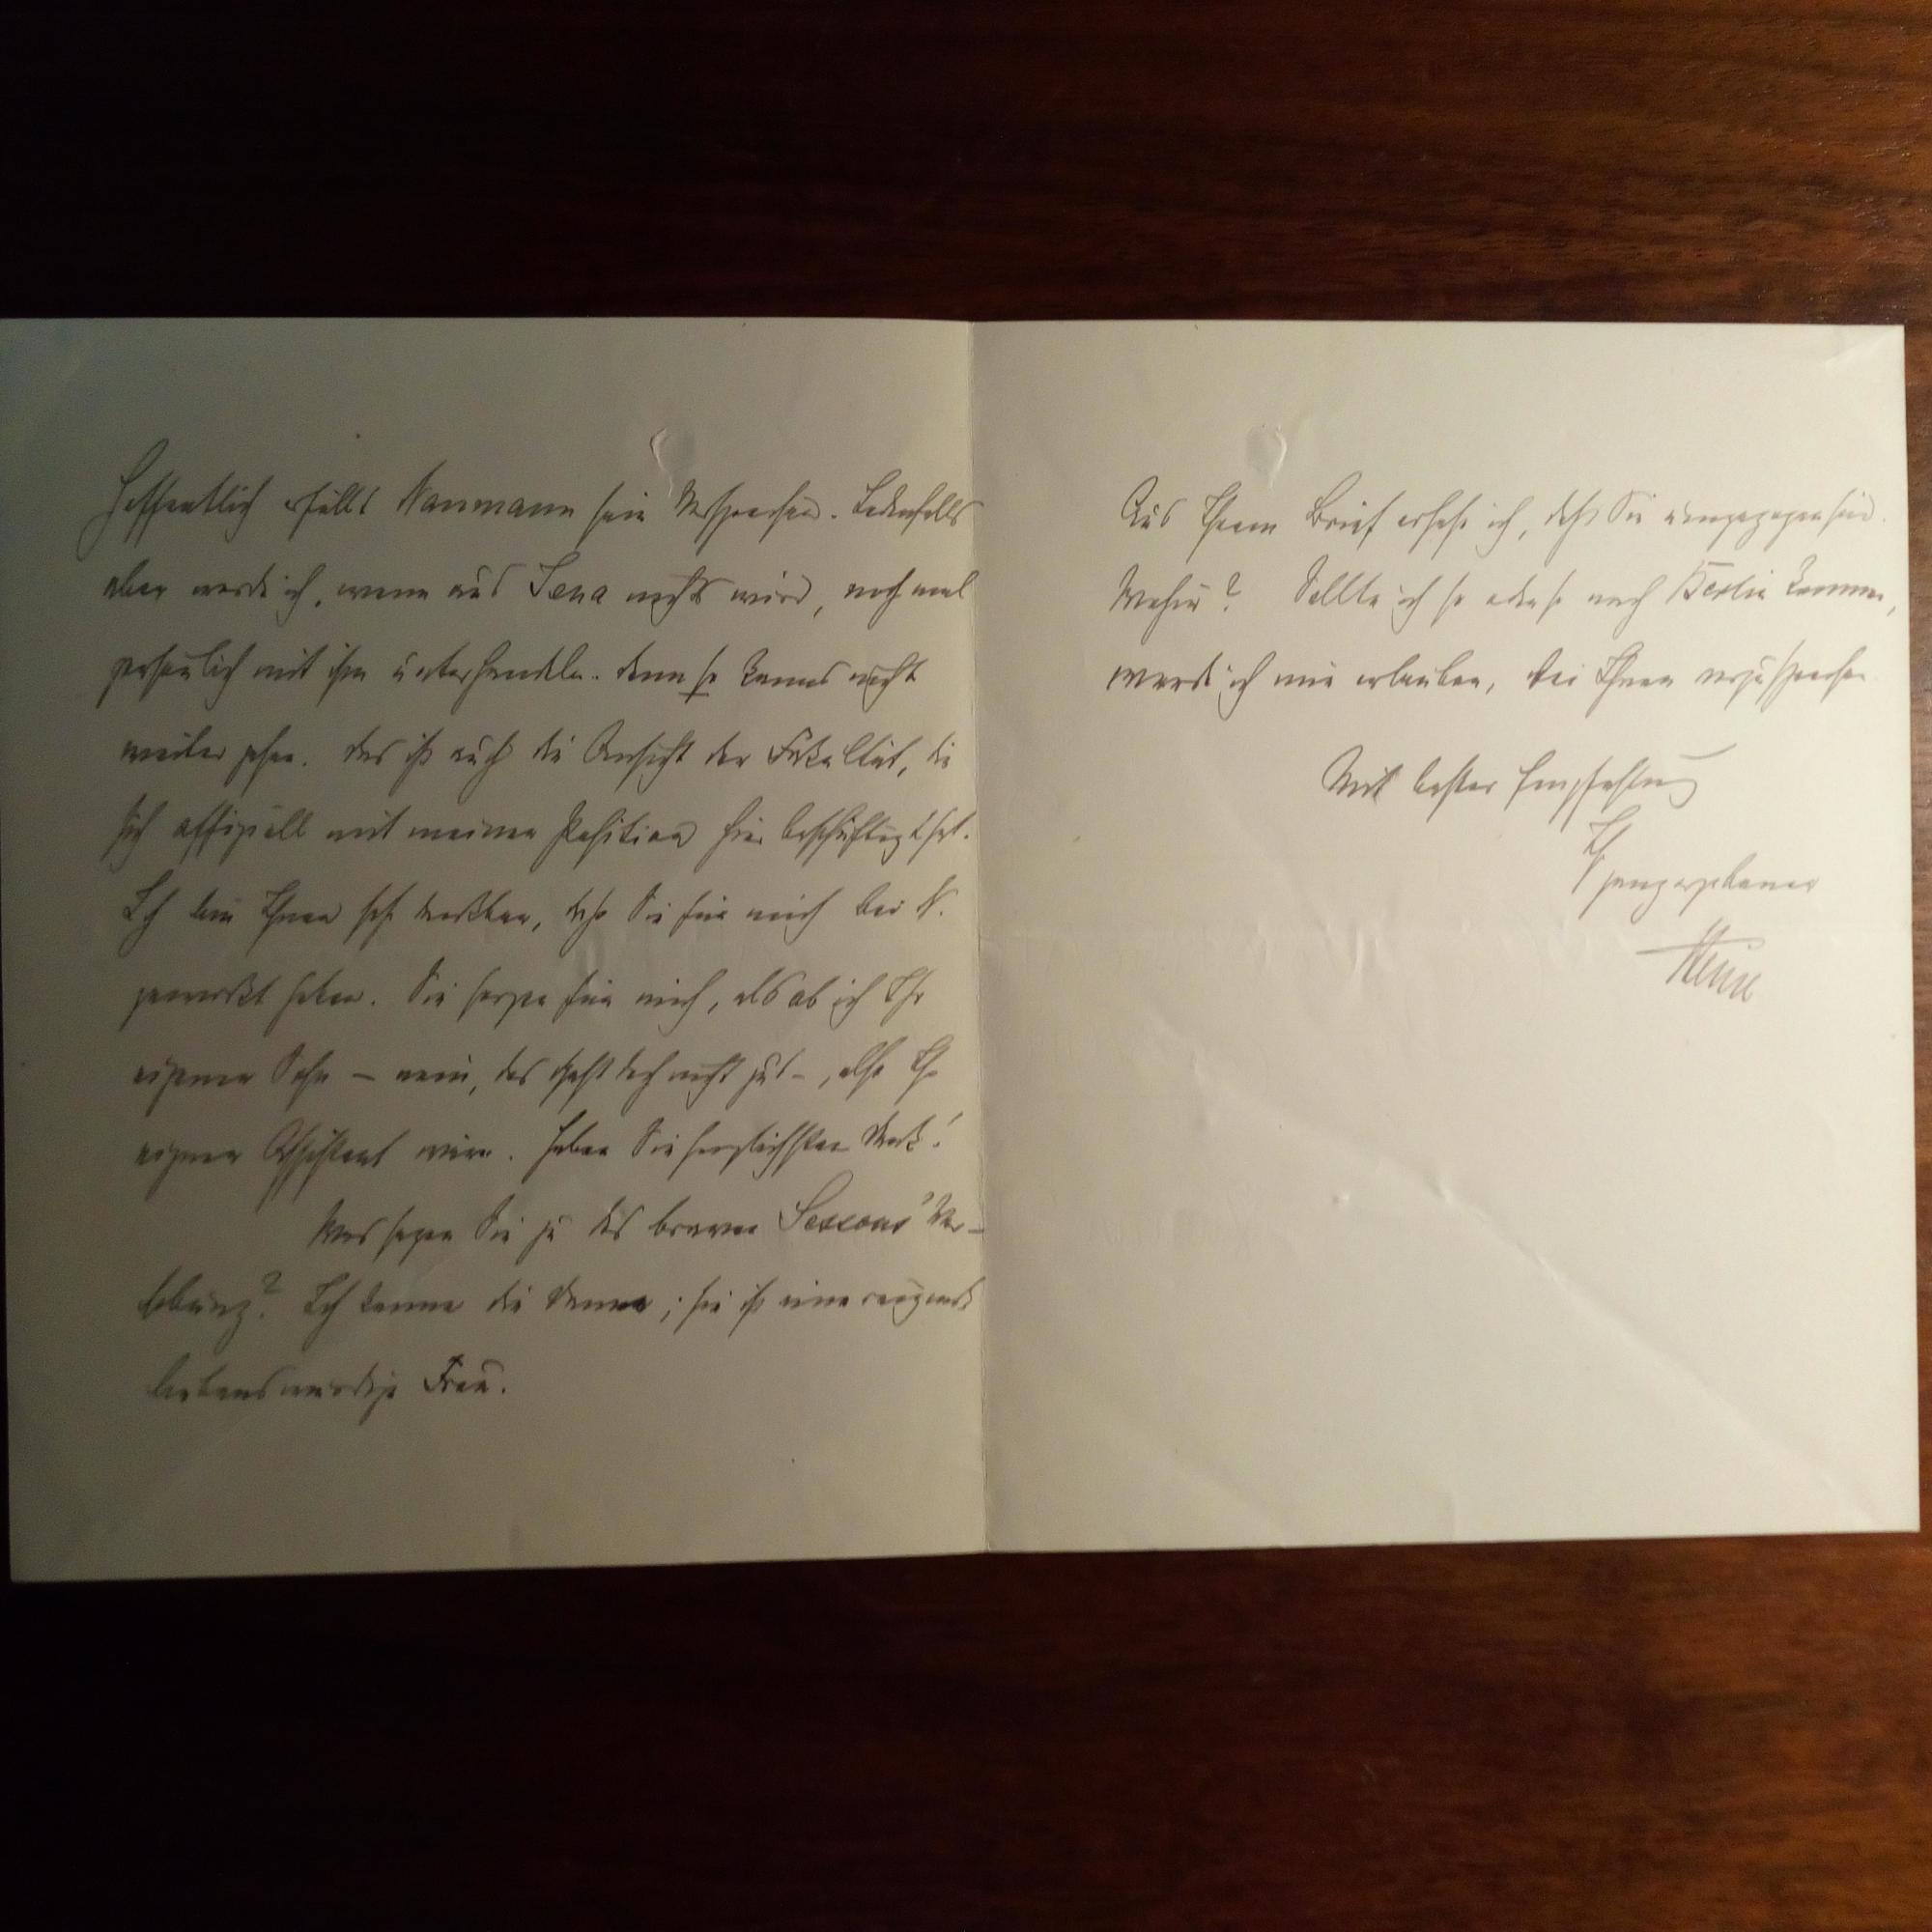 Hoffentlich erfüllt Naumann sein Versprechen. Jedenfalls
aber werde ich, wenn aus Jena nichts wird, noch mal
persönlich mit ihm unterhandeln. Denn so kanns nicht
weiter gehen. Das ist auch die Ansicht der Fakultät, die
sich offiziell mit meiner Position hier beschäftigt hat.
Ich bin Ihnen sehr dankbar, daß Sie für mich bei N.
gewirkt haben. Sie sorgen für mich, als ob ich Ihr
eigener Sohn – nein, das geht doch nicht gut –, also Ihr
eigener Assistent wäre. Haben Sie herzlichsten Dank!
Was sagen Sie zu des braven Ver-
lobung? Ich kenne die Dame; sie ist eine reizende
liebenswürdige Frau.
Aus Ihrem Brief ersehe ich, daß Sie umgezogen sind.
Wohin? Sollte ich so oder so nach Berlin kommen,
werde ich mir erlauben, bei Ihnen vorzusprechen.
Mit bester Empfehlung
Ihr
ganz ergebener